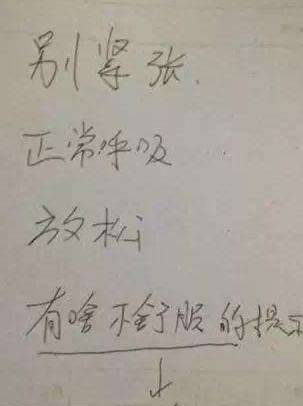 别紧张.
正常呼吸
放松
有啥不舒服的提示
↓